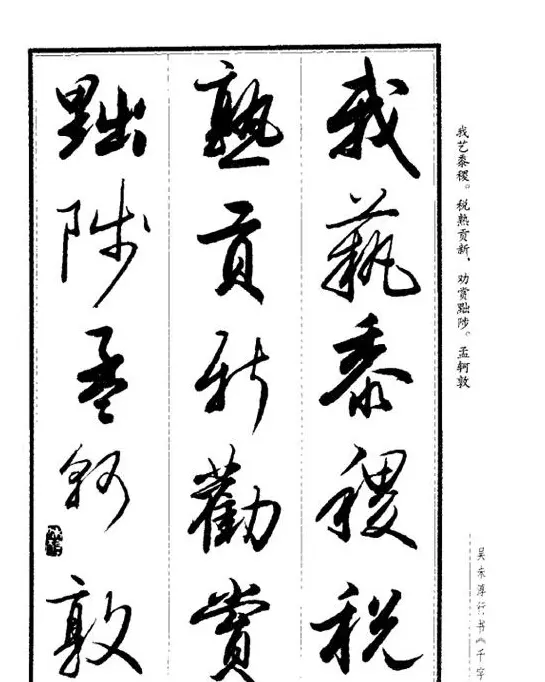 我藝黍稷税
熟貢新勸賞
黜陟孟軻敦
我艺黍稷。税熟贡新、劝赏黜陟。孟轲敦
吴未淳行书《千字